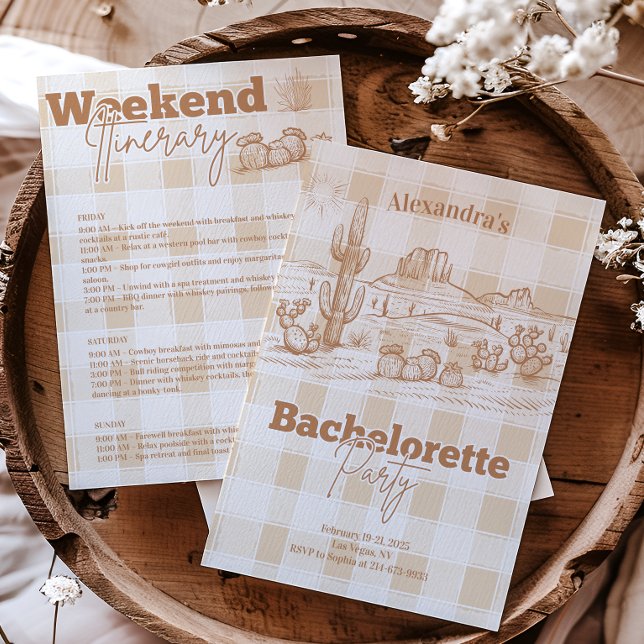 Weekend
Itinerary
FRIDAY
9:00 AM – Kick off the weekend with breakfast and whiskey
cocktails at a rustic café.
11:00 AM – Relax at a western pool bar with cowboy
snacks.
1:00 PM – Shop for cowgirl outfits and enjoy
saloon.
3:00 PM – Unwind with a spa treatment and whiskey
7:00 PM – BBQ dinner with whiskey pairings,
at a country bar.
SATURDAY
9:00 AM – Cowboy breakfast with mimosas and
11:00 AM – Scenic horseback ride and cocktails
3:00 PM – Bull riding competition with
7:00 PM – Dinner with whiskey cocktails,
dancing at a honky-tonk.
SUNDAY
9:00 AM – Farewell breakfast with
11:00 AM – Relax poolside with a
1:00 PM – Spa retreat and final toast
Alexandra's
Bachelorette
Party
February 19-21, 2025
Las Vegas, NY
RSVP to Sophia at 214-673-9933